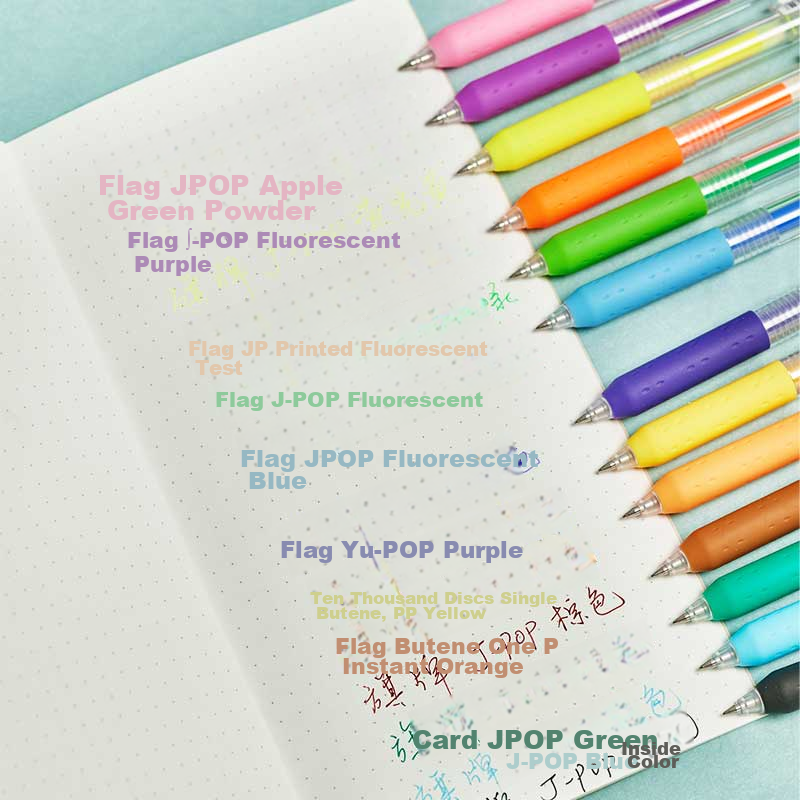 Flag JPOP Apple
Green Powder
Flag ∫-POP Fluorescent
Purple
Flag JP Printed Fluorescent
Test
Flag J-POP Fluorescent
Flag JPOP Fluorescent
Blue
Flag Yu-POP Purple
Ten Thousand Discs Single
Butene, PP Yellow
Flag Butene One P
Instant Orange
旗牌 J-POP 棕色
Card JPOP Green
Inside
J-POP Blue
Color
旗牌
J-POP